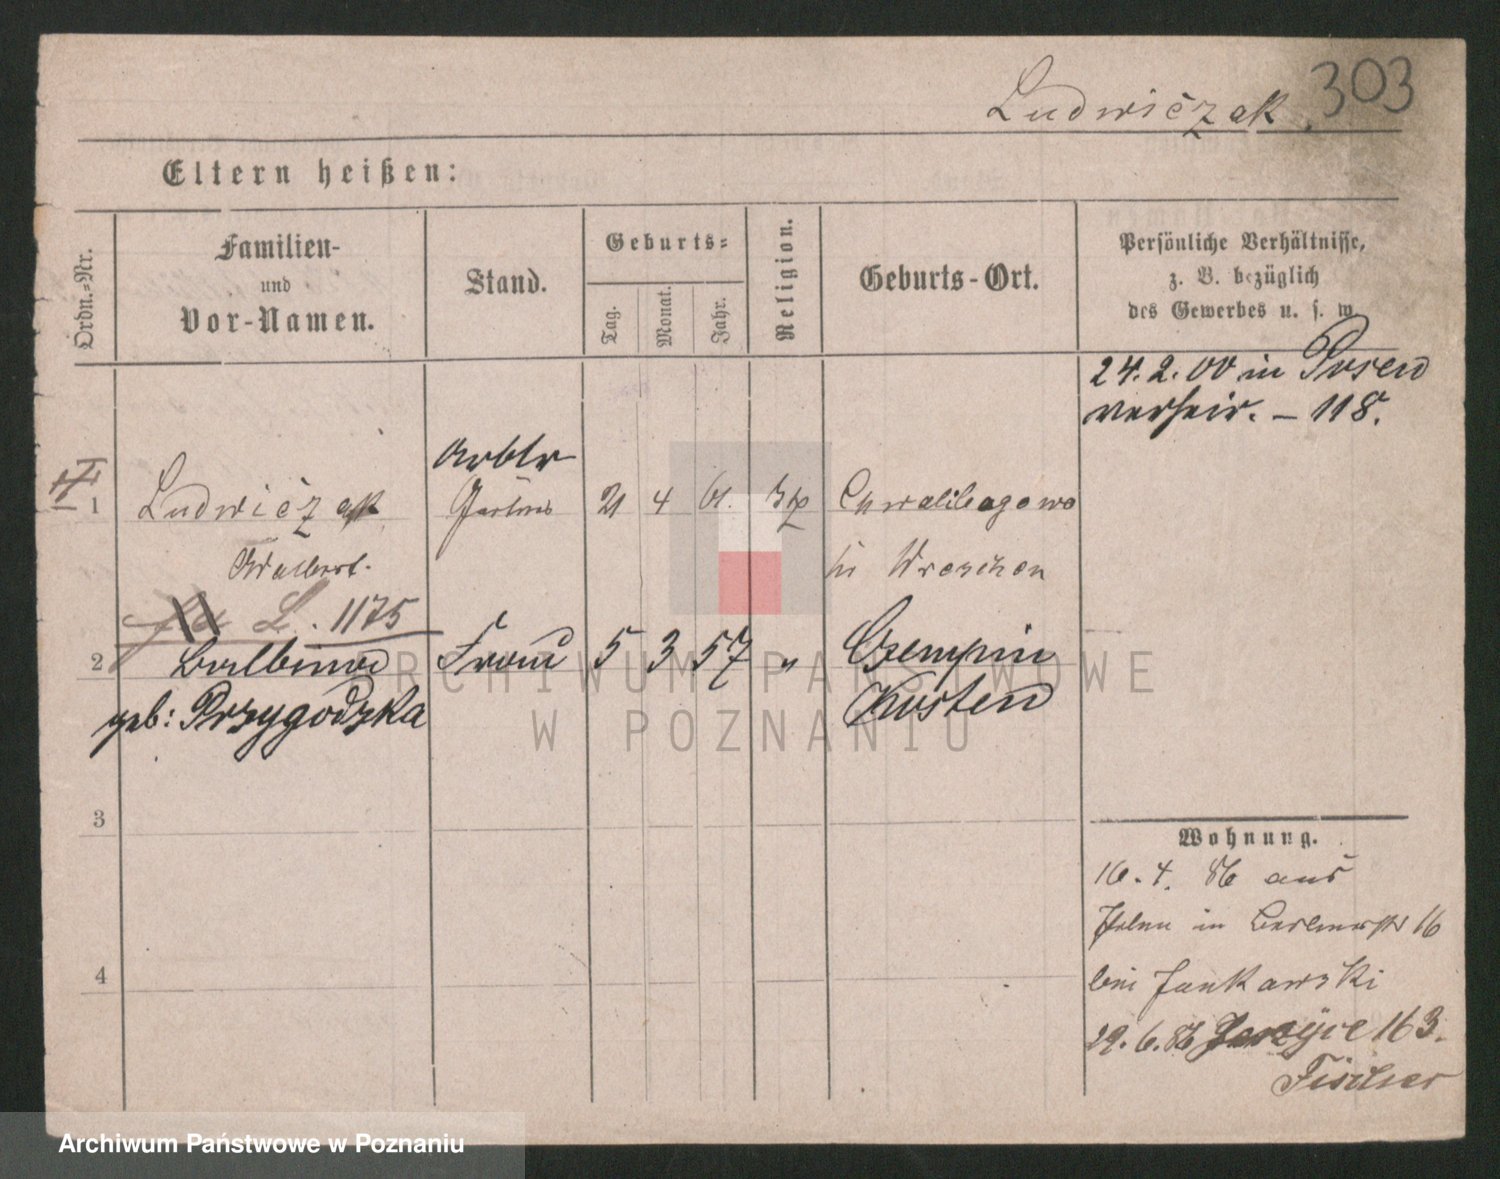 Ludwičzak
303
Eltern heißen:
Ordn.-Nr.
Familien-
und
Vor-Namen.
Stand.
Geburts-
Tag.
Monat.
Jahr.
Religion.
Geburts-Ort.
Persönliche Verhältnisse,
z. B. bezüglich
des Gewerbes u. s. w.
24. 2. 00 in Posen
verheir. – 118.
1
Ludwičzak
Adalbert.
Arbtr
21 4 61.
Chwalibogowo
in Wreschen
L. 1175
2
Balbina
geb: Przygodzka
Frau
5 3 57 "
Czempin
Kosten
3
4
Wohnung.
16. 4. 86 aus
in Berlinerstr 16
bei Jankowski
29. 6. 86 163.
Fischer
ARCHIWUM PAŃSTWOWE
W POZNANIU
Archiwum Państwowe w Poznaniu